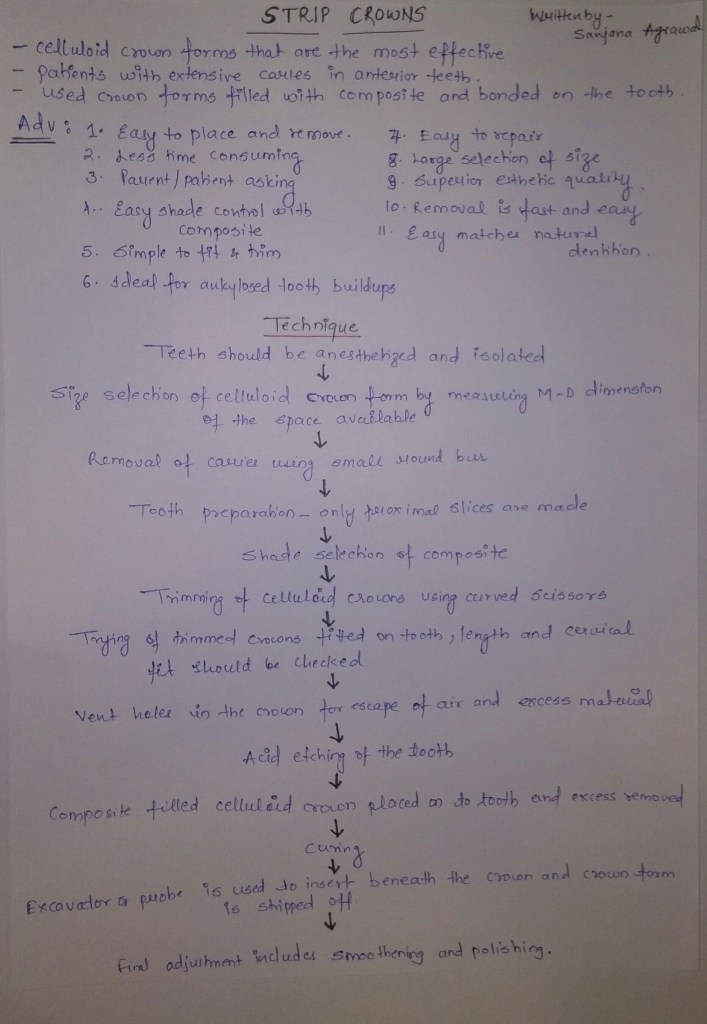 STRIP CROWNS
Written by -
Sanjana Agrawal
- celluloid crown forms that are the most effective
- patients with extensive caries in anterior teeth.
- used crown forms filled with composite and bonded on the tooth.
Adv : 1. Easy to place and remove.
2. Less time consuming
3. Parent/patient asking
4. Easy shade control with
composite
5. Simple to fit & trim
6. Ideal for ankylosed tooth buildups
7. Easy to repair
8. Large selection of size
9. Superior esthetic quality.
10. Removal is fast and easy
11. Easy matches natural
dentition.
Technique
Teeth should be anesthetized and isolated
↓
Size selection of celluloid crown form by measuring M-D dimension
of the space available
↓
Removal of caries using small round bur
↓
Tooth preparation - only proximal slices are made
↓
Shade selection of composite
↓
Trimming of celluloid crowns using curved scissors
↓
Trying of trimmed crowns fitted on tooth, length and cervical
fit should be checked
↓
Vent holes in the crown for escape of air and excess material
↓
Acid etching of the tooth
↓
Composite filled celluloid crown placed on to tooth and excess removed
↓
Curing
↓
Excavator or probe is used to insert beneath the crown and crown form
is stripped off
↓
Final adjustment includes smoothening and polishing.